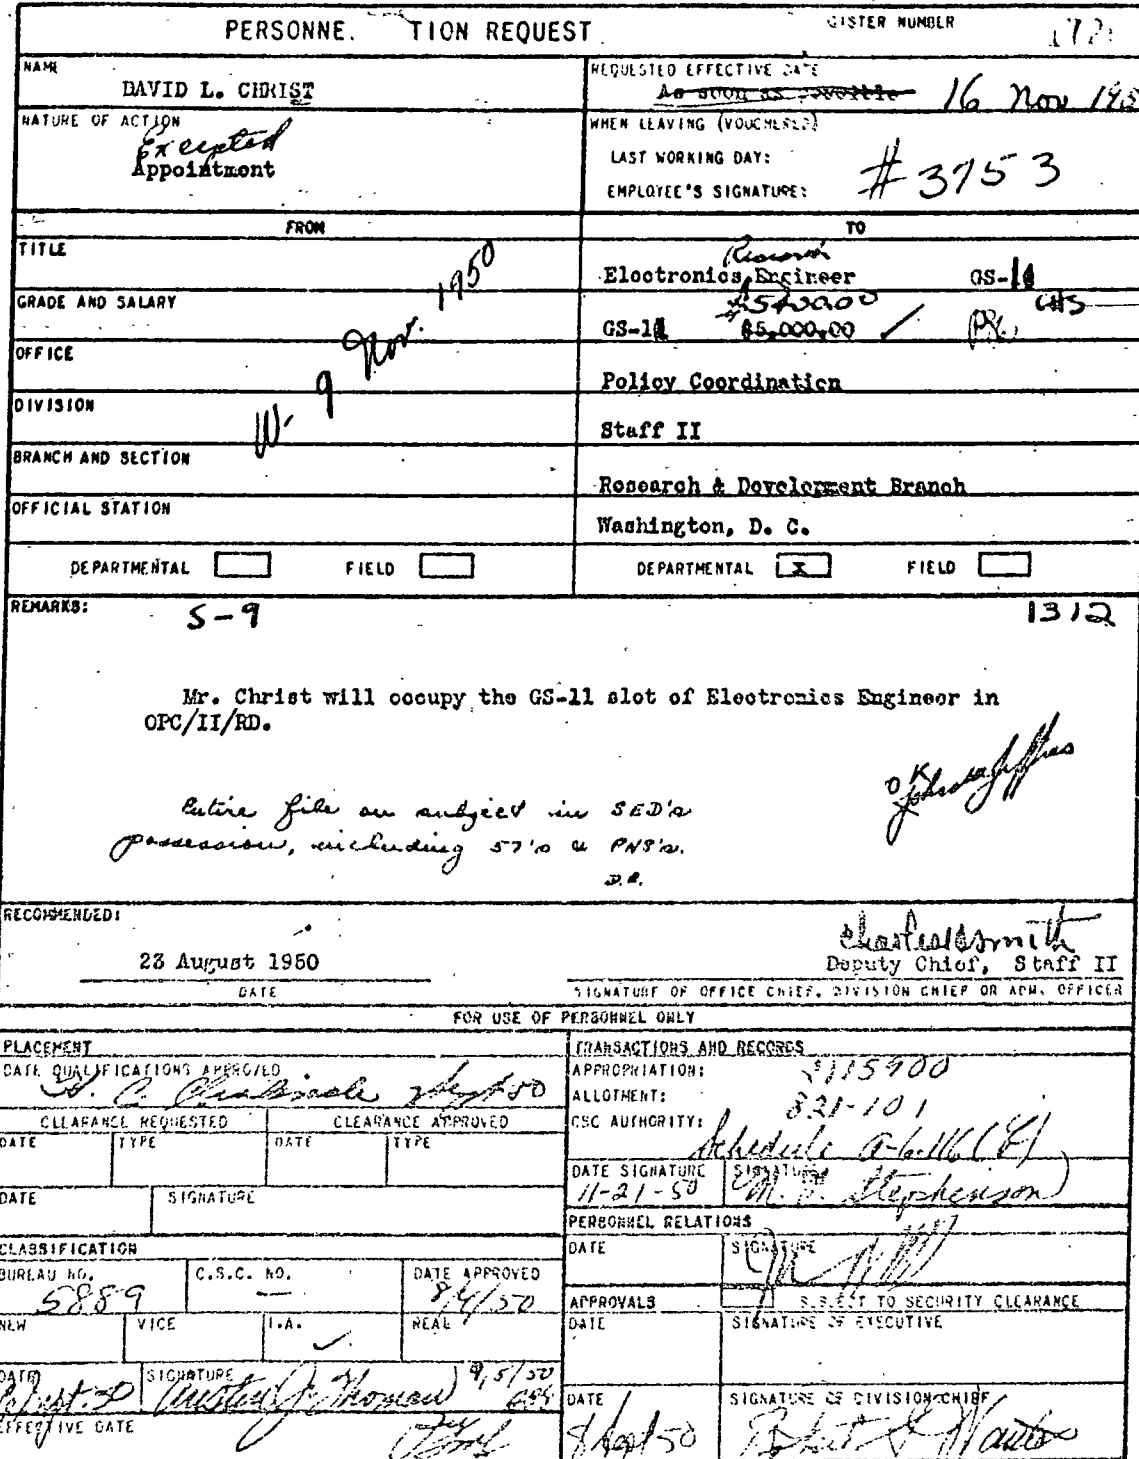 PERSONNE. TION REQUEST
GISTER NUMBER
NAME
DAVID L. CHRIST
REQUESTED EFFECTIVE DATE
As soon as possible 16 Nov 195
NATURE OF ACTION
Excepted
Appointment
WHEN LEAVING (VOUCHERED)
LAST WORKING DAY:
EMPLOYEE'S SIGNATURE:
#3753
FROM
TO
TITLE
Research
Electronics Engineer GS-11
GRADE AND SALARY
$5400.00
GS-11 $5,000.00
W. 9 Nov. 1950
OFFICE
Policy Coordination
DIVISION
Staff II
BRANCH AND SECTION
Research & Development Branch
OFFICIAL STATION
Washington, D. C.
DEPARTMENTAL FIELD
DEPARTMENTAL X FIELD
REMARKS:
S-9
1312
Mr. Christ will occupy the GS-11 slot of Electronics Engineer in
OPC/II/RD.
OK
Entire file on subject in SED's
possession, including 57's & PHS's.
D.R.
RECOMMENDED:
23 August 1950
DATE
Charles Smith
Deputy Chief, Staff II
SIGNATURE OF OFFICE CHIEF, DIVISION CHIEF OR ADM. OFFICER
FOR USE OF PERSONNEL ONLY
PLACEMENT
DATE QUALIFICATIONS APPROVED
CLEARANCE REQUESTED
CLEARANCE APPROVED
DATE TYPE DATE TYPE
DATE SIGNATURE
CLASSIFICATION
BUREAU NO.
5889
C.S.C. NO.
—
DATE APPROVED
8/4/50
NEW VICE I.A. REAL
✓
DATE
SIGNATURE
Austin J. Thoman
9/5/50
EFFECTIVE DATE
TRANSACTIONS AND RECORDS
APPROPRIATION:
2115900
ALLOTMENT:
321-101
CSC AUTHORITY:
Schedule A-6.116(b)
DATE SIGNATURE
11-21-50
SIGNATURE
Stephenson
PERSONNEL RELATIONS
DATE
SIGNATURE
APPROVALS
SUBJECT TO SECURITY CLEARANCE
DATE
SIGNATURE OF EXECUTIVE
DATE
SIGNATURE OF DIVISION CHIEF